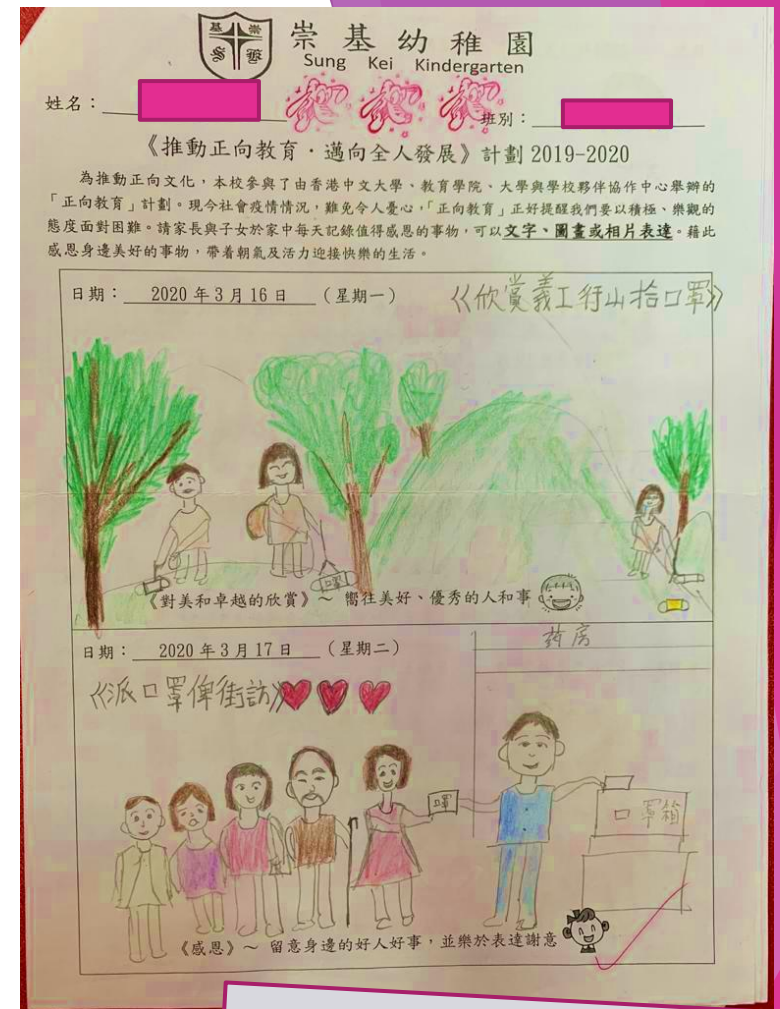 崇基幼稚園
Sung Kei Kindergarten
姓名：
班別：
《推動正向教育．邁向全人發展》計劃 2019-2020
為推動正向文化，本校參與了由香港中文大學、教育學院、大學與學校夥伴協作中心舉辦的
「正向教育」計劃。現今社會疫情情況，難免令人憂心，「正向教育」正好提醒我們要以積極、樂觀的
態度面對困難。請家長與子女於家中每天記錄值得感恩的事物，可以文字、圖畫或相片表達。藉此
感恩身邊美好的事物，帶着朝氣及活力迎接快樂的生活。
日期： 2020 年 3 月 16 日 （星期一）
《欣賞義工行山拾口罩》
口罩
《對美和卓越的欣賞》～ 嚮往美好、優秀的人和事
日期： 2020 年 3 月 17 日 （星期二）
葯房
《派口罩俾街訪》
口罩
口罩箱
《感恩》～ 留意身邊的好人好事，並樂於表達謝意